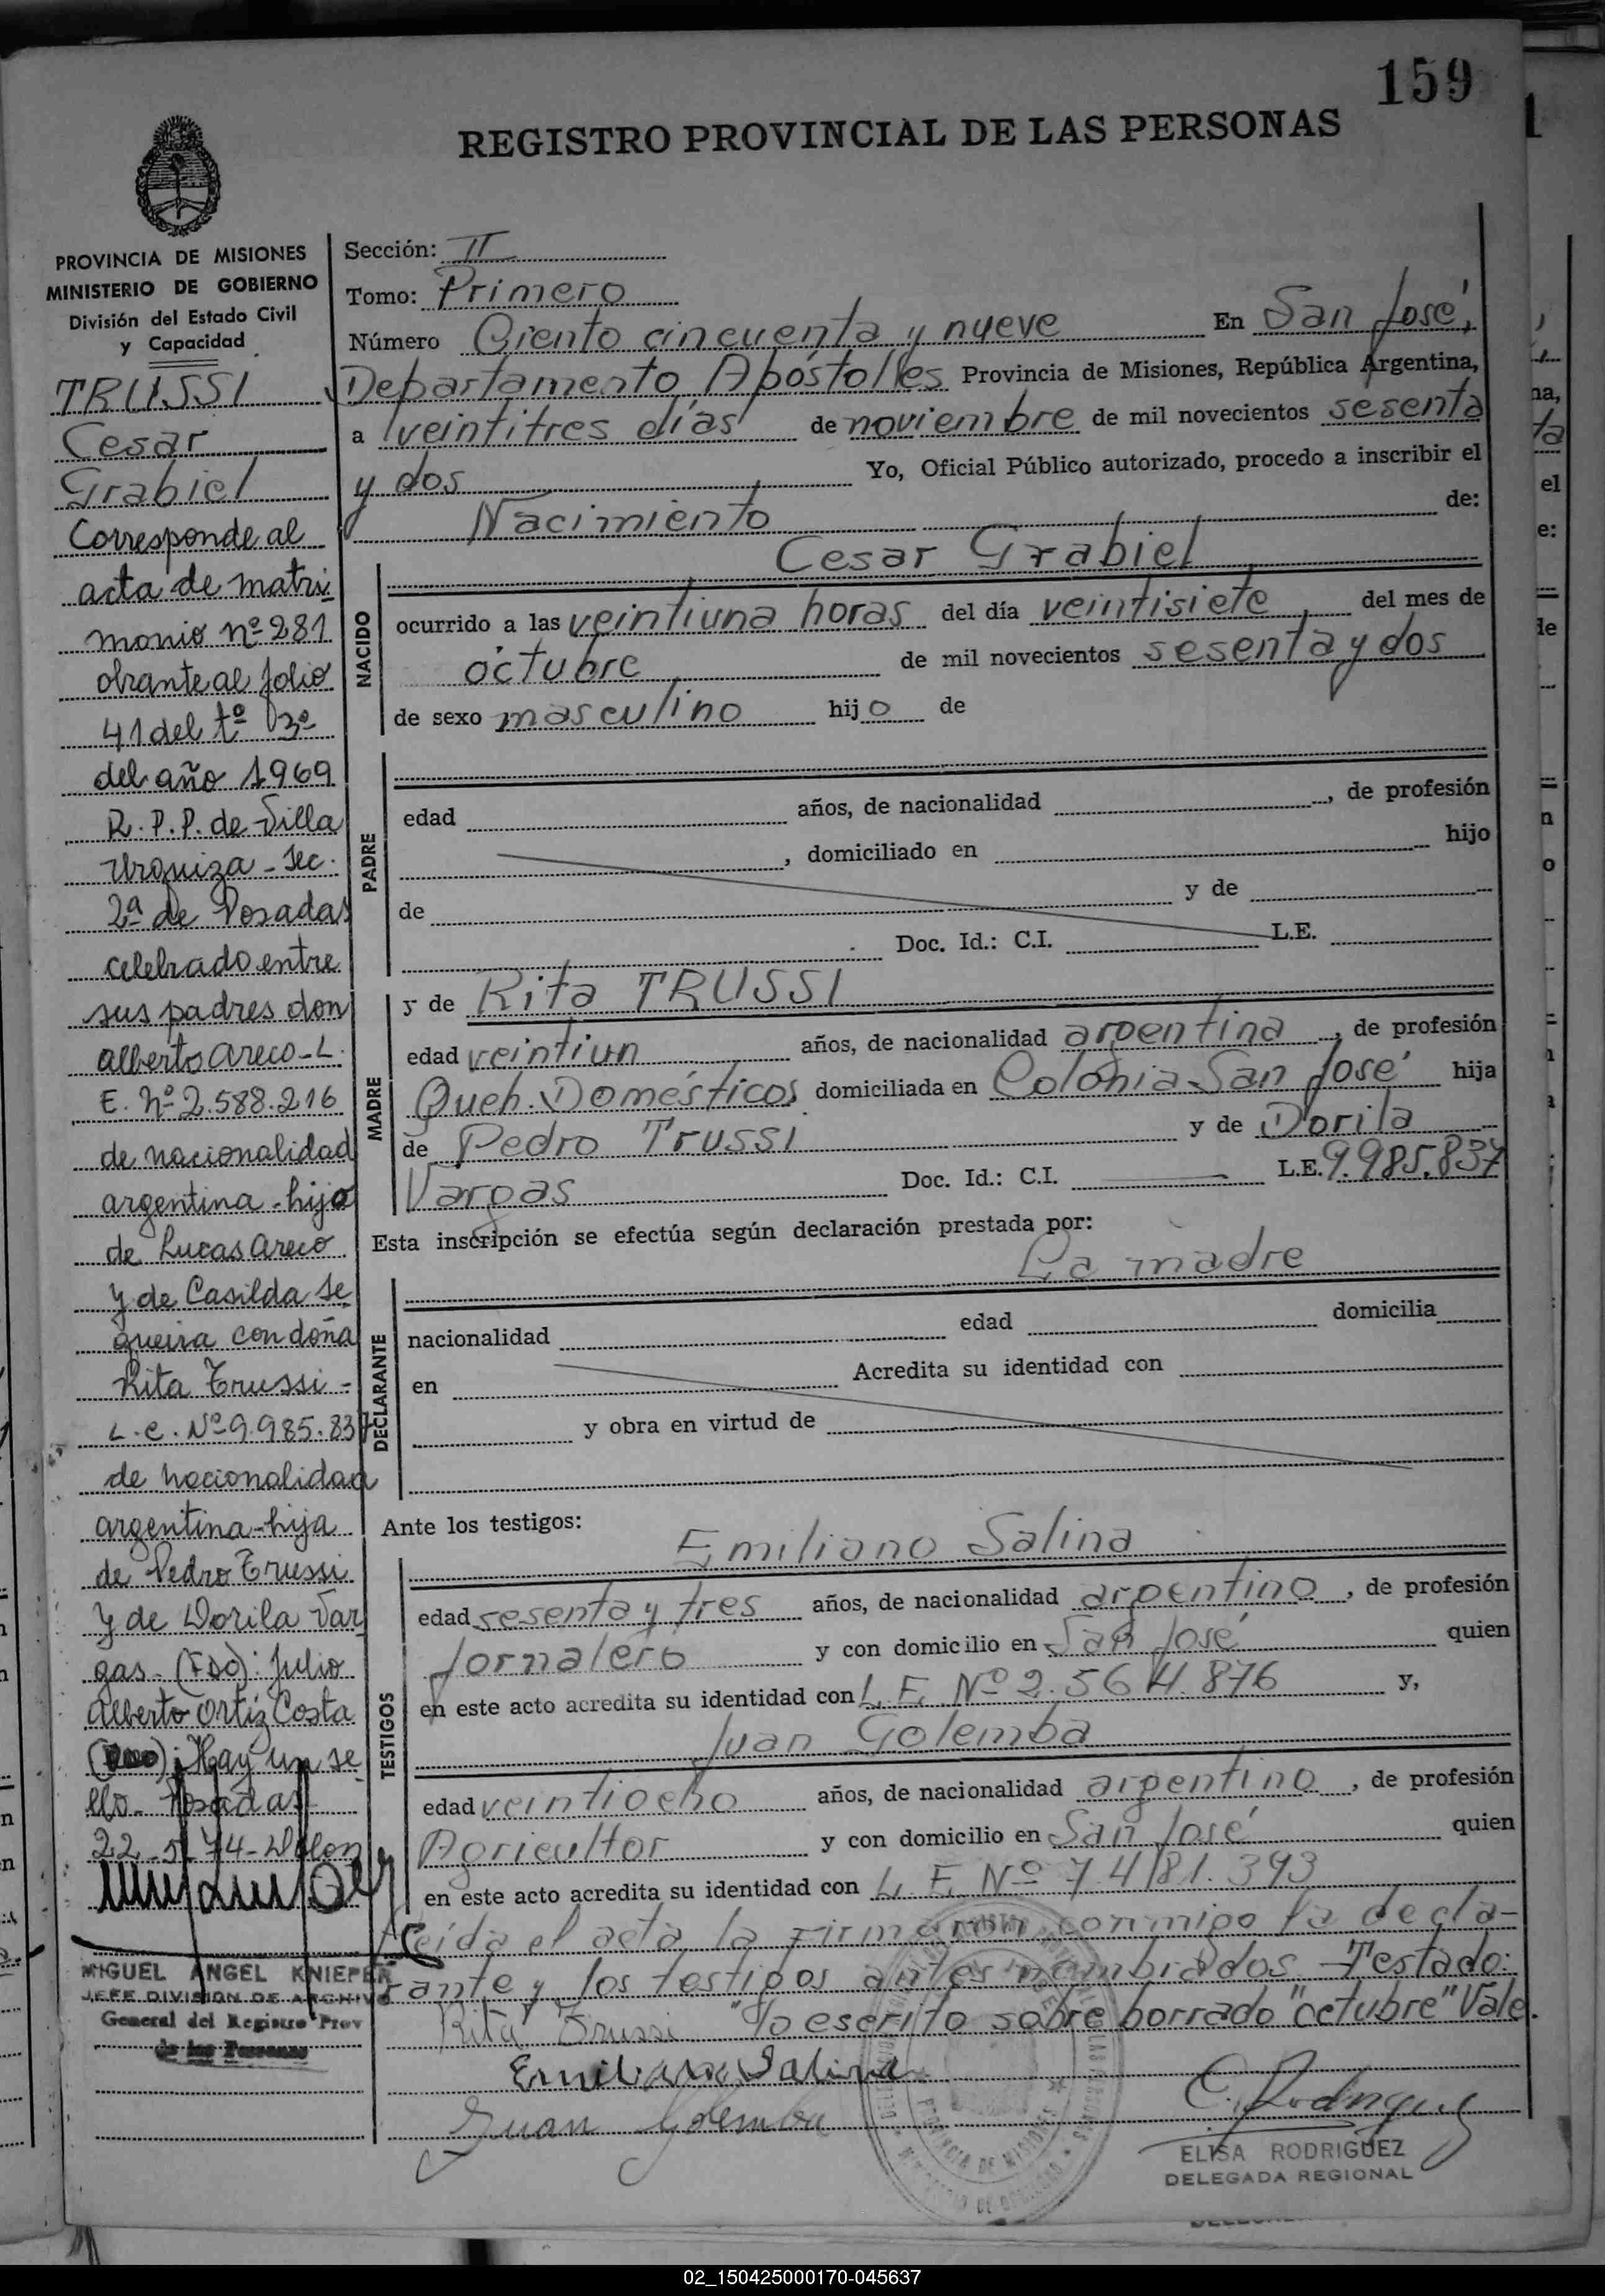 159
REGISTRO PROVINCIAL DE LAS PERSONAS
PROVINCIA DE MISIONES
MINISTERIO DE GOBIERNO
División del Estado Civil
y Capacidad
TRUSSI
Cesar
Grabiel
Corresponde al
acta de matri
monio nº 281
obrante al folio
41 del tº 3º
del año 1969
R.P.P. de Villa
Urquiza - Sec.
2ª de Posadas
celebrado entre
sus padres don
Alberto Areco - L.
E. Nº 2.588.216
de nacionalidad
argentina - hijo
de Lucas Areco
y de Casilda Se
queira con doña
Rita Trussi -
L.C. Nº 9.985.837
de nacionalidad
argentina - hija
de Pedro Trussi
y de Dorila Var
gas - (FDO): Julio
Alberto Ortiz Costa
Hay un se
llo - Posadas
22-5-74
MIGUEL ANGEL KNIEPER
JEFE DIVISION DE ARCHIVO
General del Registro Prov
de las Personas
Sección: II
Tomo: Primero
Número Ciento cincuenta y nueve En San José,
Departamento Apóstolles Provincia de Misiones, República Argentina,
a veintitres días de noviembre de mil novecientos sesenta
y dos Yo, Oficial Público autorizado, procedo a inscribir el
Nacimiento de:
Cesar Grabiel
NACIDO
ocurrido a las veintiuna horas del día veintisiete del mes de
octubre de mil novecientos sesenta y dos
de sexo masculino hijo de
PADRE
edad años, de nacionalidad , de profesión
, domiciliado en hijo
de y de
Doc. Id.: C.I. L.E.
MADRE
y de Rita TRUSSI
edad veintiun años, de nacionalidad argentina, de profesión
Queh. Domésticos domiciliada en Colonia San José hija
de Pedro Trussi y de Dorila
Vargas Doc. Id.: C.I. L.E. 9.985.837
Esta inscripción se efectúa según declaración prestada por:
La madre
DECLARANTE
nacionalidad edad domicilia
en Acredita su identidad con
y obra en virtud de
Ante los testigos:
TESTIGOS
Emiliano Salina
edad sesenta y tres años, de nacionalidad argentino, de profesión
Jornalero y con domicilio en San José quien
en este acto acredita su identidad con L.E. Nº 2.564.876 y,
Juan Golemba
edad veintiocho años, de nacionalidad argentino, de profesión
Agricultor y con domicilio en San José quien
en este acto acredita su identidad con L.E. Nº 7.481.393
Leida el acta la firmaron conmigo la decla-
rante y los testigos antes nombrados. Testado:
Rita Trussi "lo escrito sobre borrado "octubre" Vale.
Emiliano Salina
Juan Golemba
C. Rodriguez
ELISA RODRIGUEZ
DELEGADA REGIONAL
02_150425000170-045637